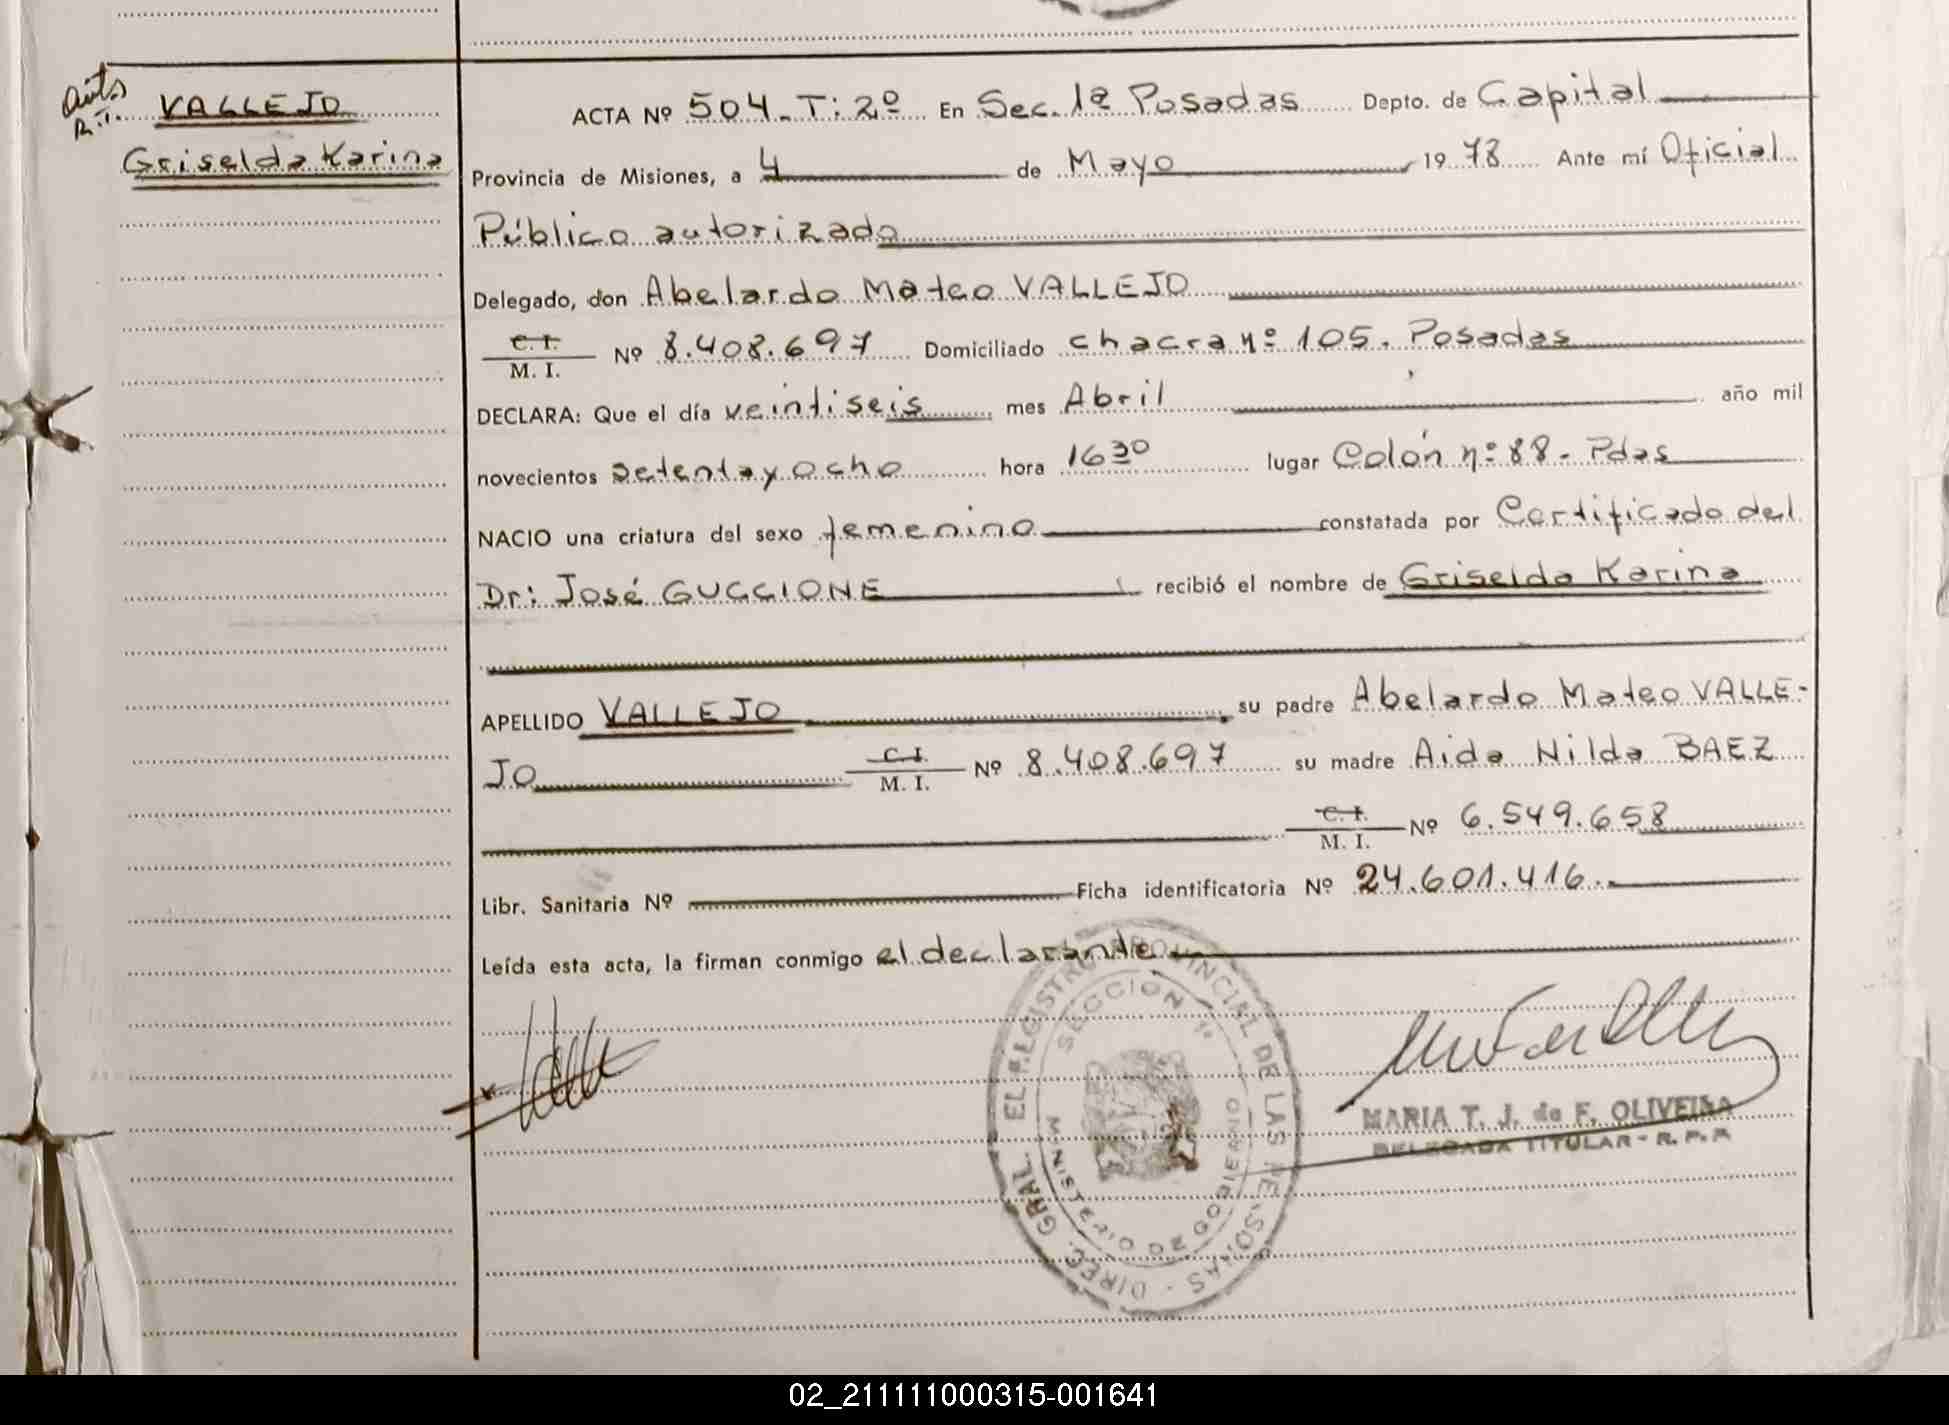 Auts
R.T.
VALLEJO
Griselda Karina
ACTA Nº 504.T:2º En Sec. 1ª Posadas Depto. de Capital
Provincia de Misiones, a 4 de Mayo 1978 Ante mí Oficial
Público autorizado
Delegado, don Abelardo Mateo VALLEJO
C. I.
M. I. Nº 8.408.697 Domiciliado chacra nº 105. Posadas
DECLARA: Que el día veintiseis mes Abril año mil
novecientos setenta y ocho hora 16 30 lugar Colón nº 88 - Pdas
NACIO una criatura del sexo femenino constatada por Certificado del
Dr: José GUCCIONE recibió el nombre de Griselda Karina
APELLIDO VALLEJO su padre Abelardo Mateo VALLE-
JO C. I. M. I. Nº 8.408.697 su madre Aida Nilda BAEZ
C. I. M. I. Nº 6.549.658
Libr. Sanitaria Nº Ficha identificatoria Nº 24.601.416.-
Leída esta acta, la firman conmigo el declarante
DIREC. GRAL. EL REGISTRO PROVINCIAL DE LAS PERSONAS
SECCION 1ª
MINISTERIO DE GOBIERNO
MARIA T. J. de F. OLIVEIRA
DELEGADA TITULAR - R. P. P.
02_211111000315-001641